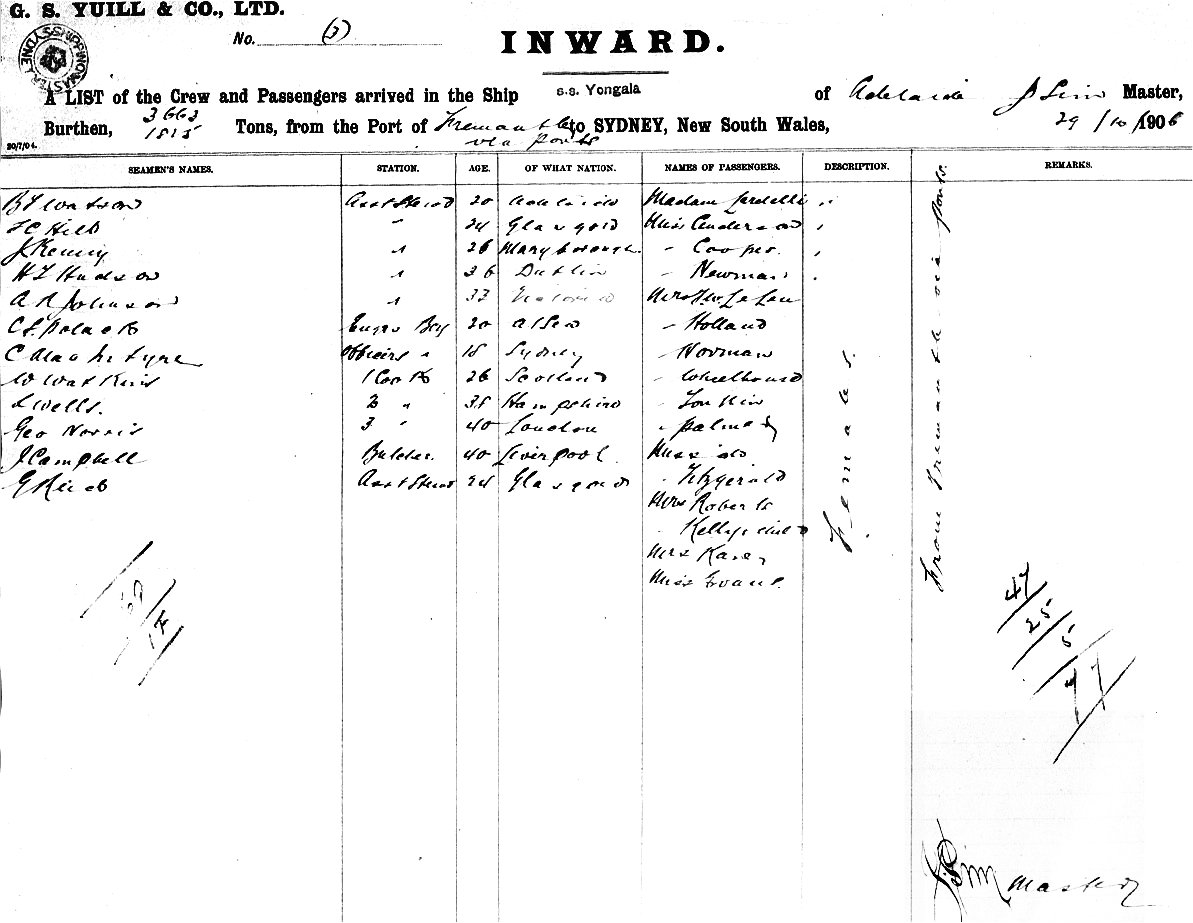 G. S. YUILL & CO., LTD.
No. (3)
INWARD.
SHIPPING MASTER SYDNEY
A LIST of the Crew and Passengers arrived in the Ship s.s. Yongala of Adelaide J Sim Master,
Burthen, 3663 1815 Tons, from the Port of Fremantle via ports to SYDNEY, New South Wales, 29/10/1906
20/7/04.
SEAMEN'S NAMES. STATION. AGE. OF WHAT NATION. NAMES OF PASSENGERS. DESCRIPTION. REMARKS.
Watson Asst Stewd 20 Adelaide Madam "
Hill " 24 Glasgow Miss Anderson "
J Kenny " 26 Maryborough - Cooper "
Hudson " 36 Dublin - Newman "
A R Johnson " 33 Mrs
20 - Holland
C MacIntyre Officers " 18 Sydney - Norman
W Watkins 1 Cook 26 Scotland - Wheelhouse
Wells. 2 " Hampshire -
Geo Norris 3 " 40 London " Palmer
J Campbell Butcher 40 Liverpool Miss do
Asst Stewd 24 Glasgow - Fitzgerald
Mrs Roberts
- Kelly & child
Mrs
Miss Evans.
Females.
From Fremantle via ports.
47
25
5
77
J Sim Master